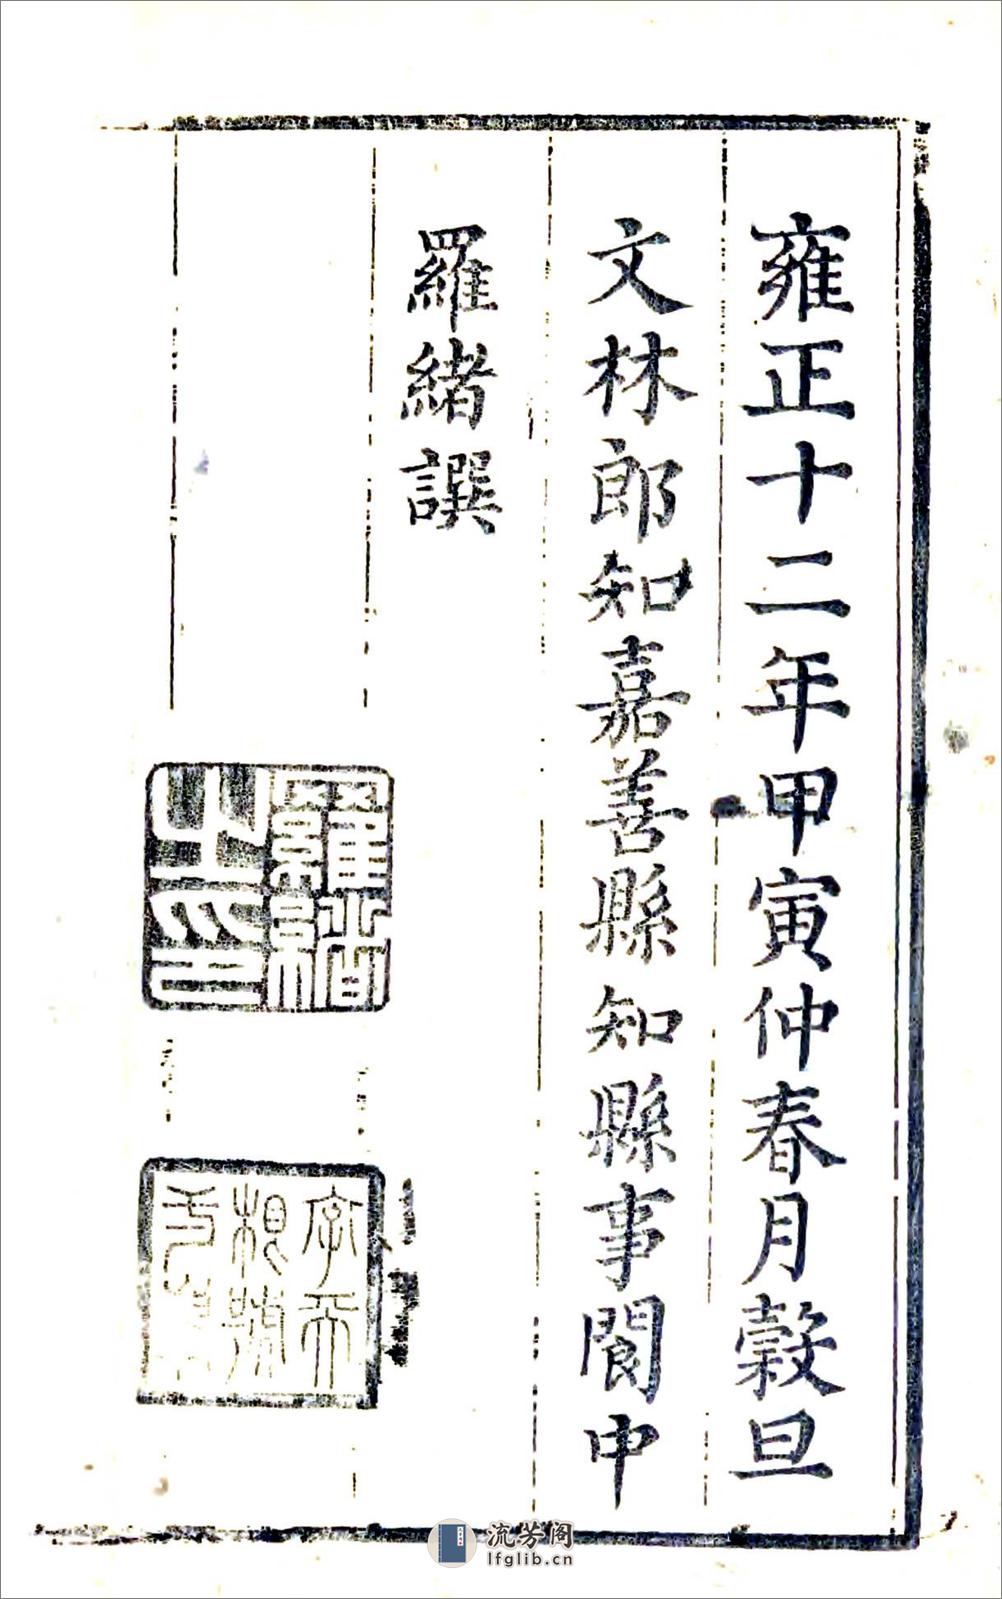 雍正十二年甲寅仲春月穀旦
文林郎知嘉善縣知縣事閬中
羅緒譔
羅緒之印
流芳阁
lfglib.cn